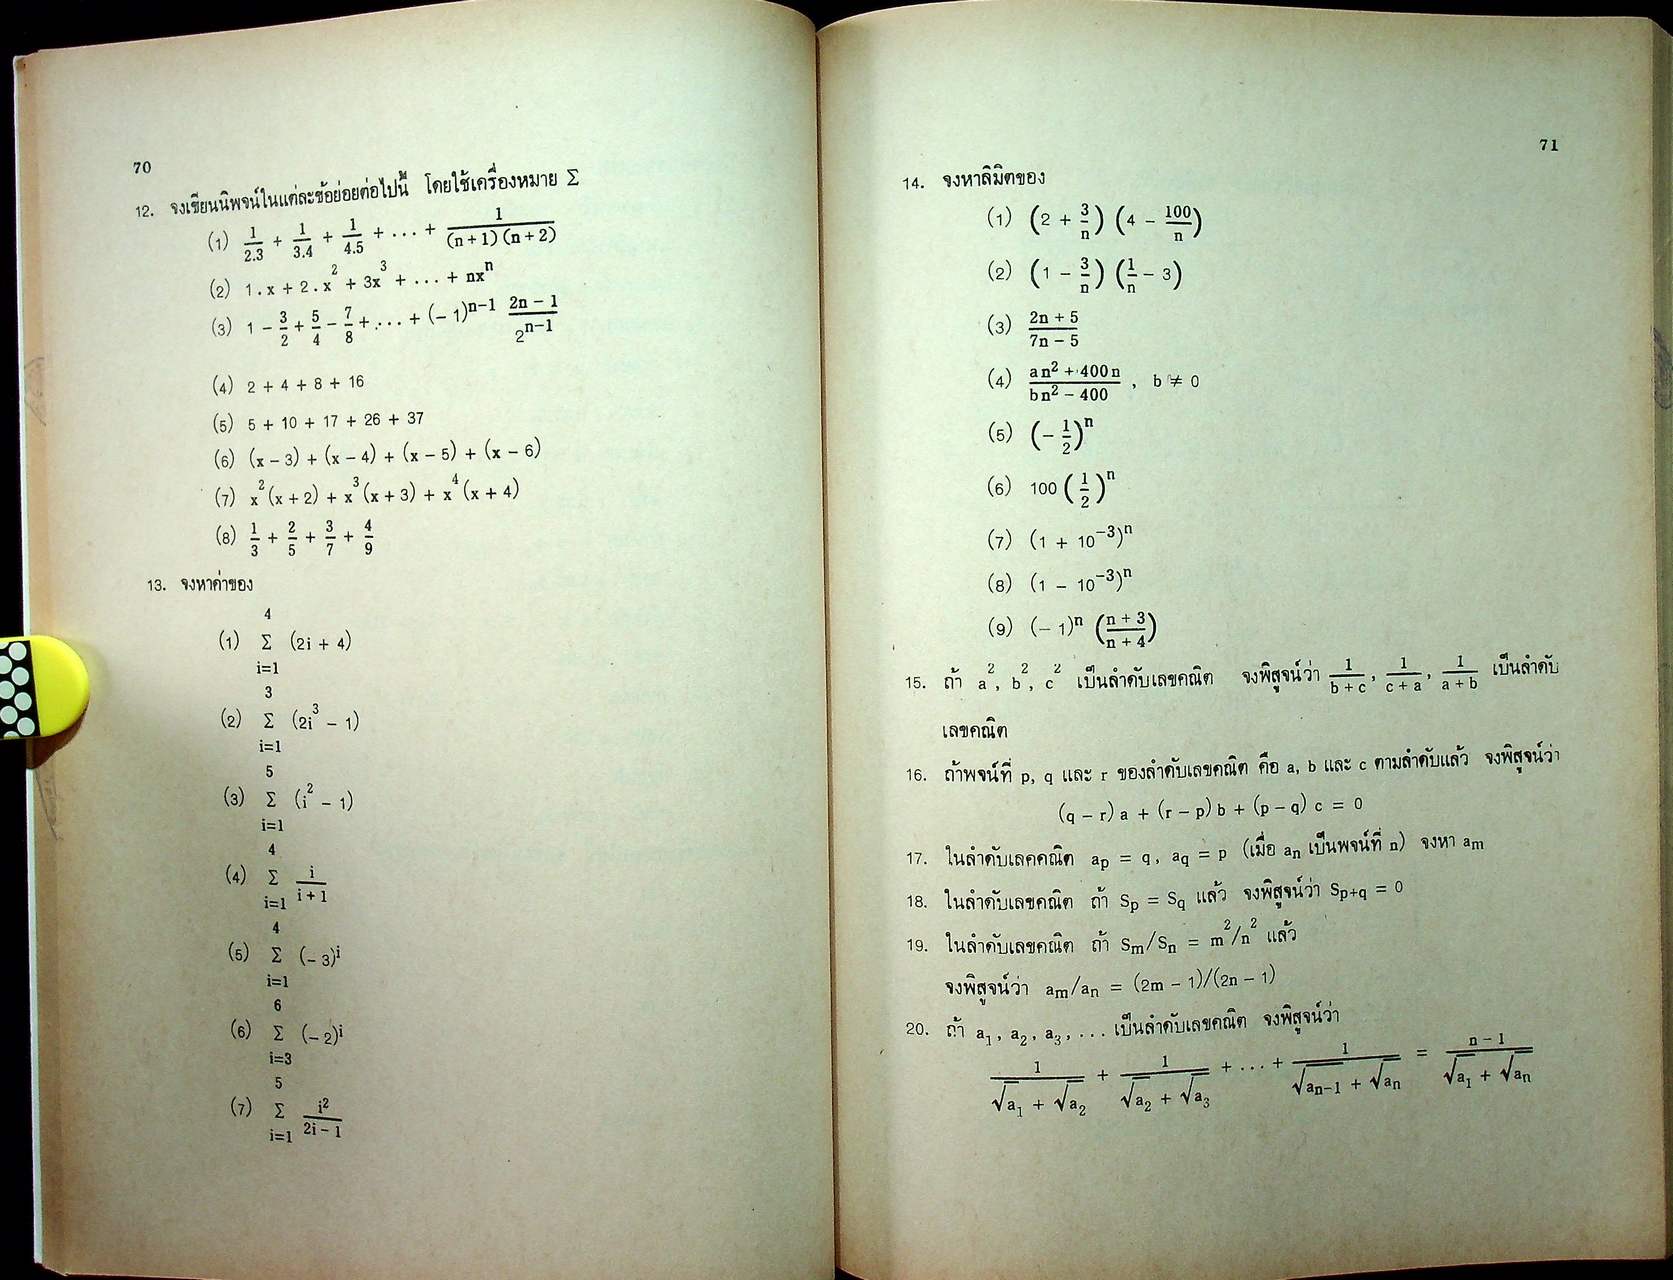 70
12. จงเขียนนิพจน์ในแต่ละข้อย่อยต่อไปนี้ โดยใช้เครื่องหมาย Σ
(1) 1/2.3 + 1/3.4 + 1/4.5 + ... + 1/(n+1)(n+2)
(2) 1.x + 2.x² + 3x³ + ... + nxⁿ
(3) 1 − 3/2 + 5/4 − 7/8 + ... + (−1)ⁿ⁻¹ (2n − 1)/2ⁿ⁻¹
(4) 2 + 4 + 8 + 16
(5) 5 + 10 + 17 + 26 + 37
(6) (x − 3) + (x − 4) + (x − 5) + (x − 6)
(7) x²(x + 2) + x³(x + 3) + x⁴(x + 4)
(8) 1/3 + 2/5 + 3/7 + 4/9
13. จงหาค่าของ
4
(1) Σ (2i + 4)
i=1
3
(2) Σ (2i³ − 1)
i=1
5
(3) Σ (i² − 1)
i=1
4
(4) Σ i/(i + 1)
i=1
4
(5) Σ (−3)ⁱ
i=1
6
(6) Σ (−2)ⁱ
i=3
5
(7) Σ i²/(2i − 1)
i=1
71
14. จงหาลิมิตของ
(1) (2 + 3/n) (4 − 100/n)
(2) (1 − 3/n) (1/n − 3)
(3) (2n + 5)/(7n − 5)
(4) (an² + 400n)/(bn² − 400) , b ≠ 0
(5) (−1/2)ⁿ
(6) 100 (1/2)ⁿ
(7) (1 + 10⁻³)ⁿ
(8) (1 − 10⁻³)ⁿ
(9) (−1)ⁿ ((n + 3)/(n + 4))
15. ถ้า a², b², c² เป็นลำดับเลขคณิต จงพิสูจน์ว่า 1/(b + c), 1/(c + a), 1/(a + b) เป็นลำดับ
เลขคณิต
16. ถ้าพจน์ที่ p, q และ r ของลำดับเลขคณิต คือ a, b และ c ตามลำดับแล้ว จงพิสูจน์ว่า
(q − r) a + (r − p) b + (p − q) c = 0
17. ในลำดับเลคคณิต aₚ = q, a_q = p (เมื่อ aₙ เป็นพจน์ที่ n) จงหา aₘ
18. ในลำดับเลขคณิต ถ้า Sₚ = S_q แล้ว จงพิสูจน์ว่า Sₚ₊q = 0
19. ในลำดับเลขคณิต ถ้า Sₘ/Sₙ = m²/n² แล้ว
จงพิสูจน์ว่า aₘ/aₙ = (2m − 1)/(2n − 1)
20. ถ้า a₁, a₂, a₃, ... เป็นลำดับเลขคณิต จงพิสูจน์ว่า
1/(√a₁ + √a₂) + 1/(√a₂ + √a₃) + ... + 1/(√aₙ₋₁ + √aₙ) = (n − 1)/(√a₁ + √aₙ)